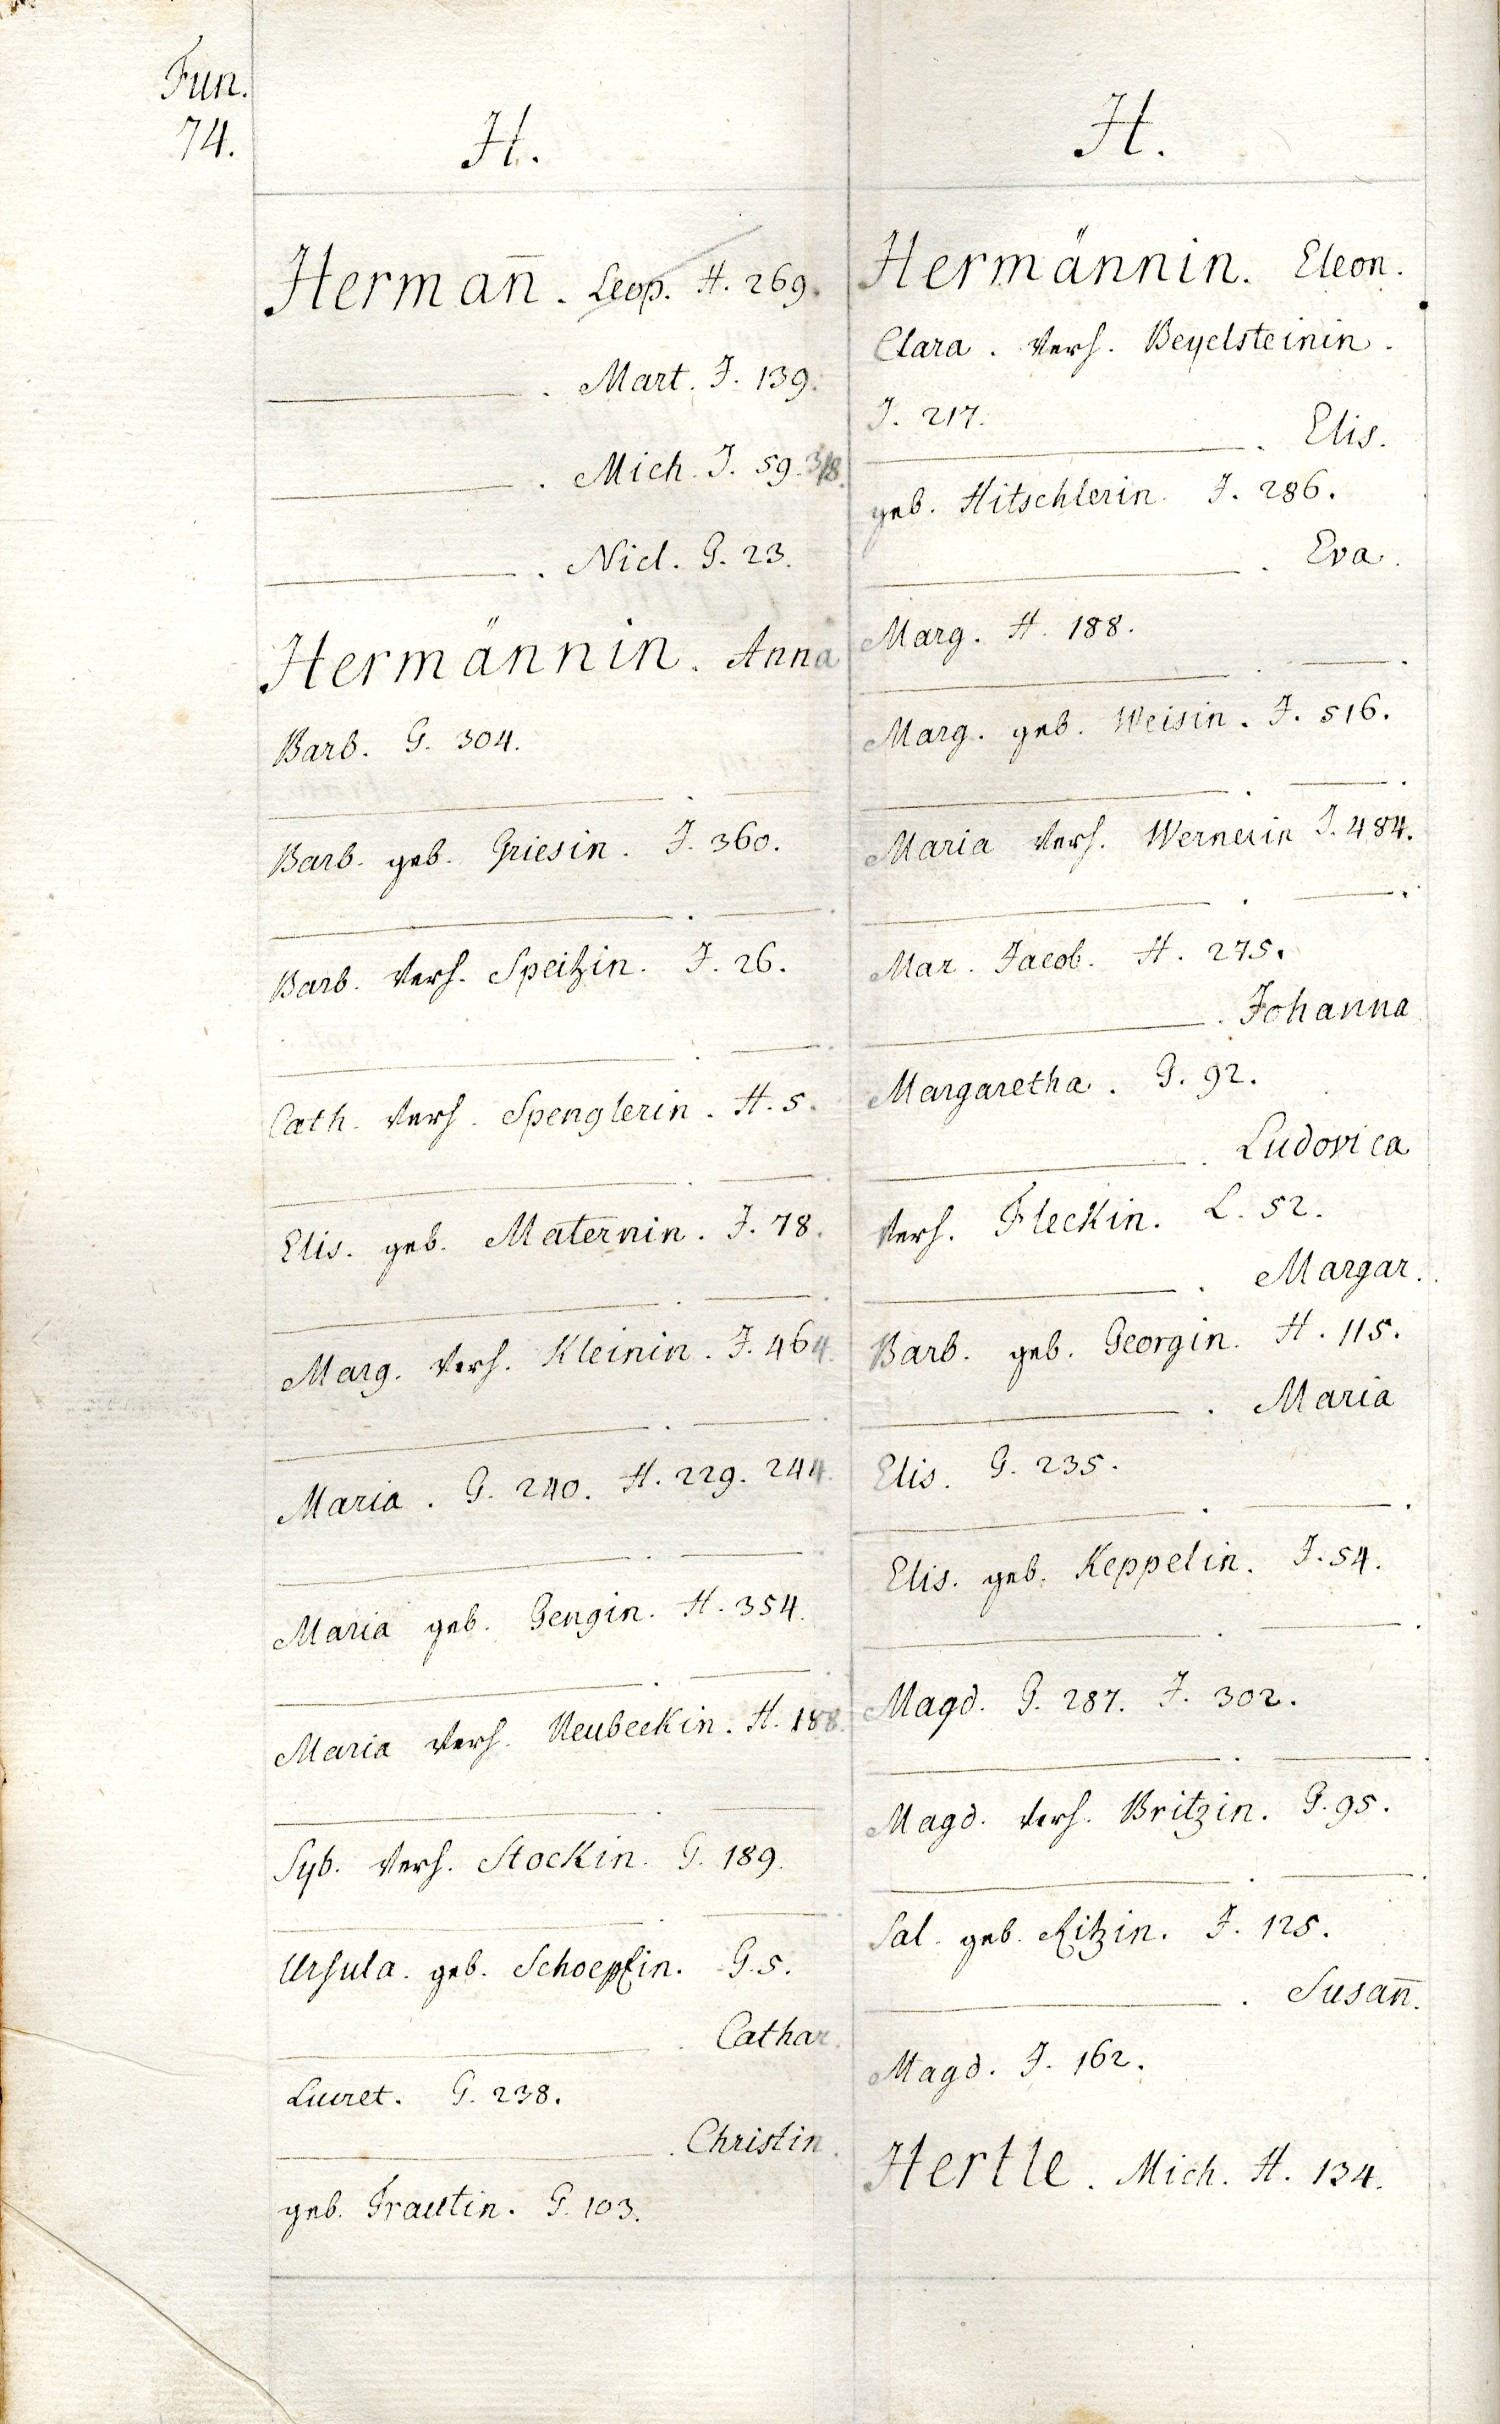 Fun.
74.
H.
Hermañ. Leop. H. 269.
. Mart. J. 139.
. Mich. J. 59. 318.
. Nicl. G. 23.
Hermännin. Anna
Barb. G. 304.
Barb. geb. Griesin. J. 360.
Barb. verh. Speitzin. J. 26.
Cath. verh. Spenglerin. H. 5.
Elis. geb. Maternin. J. 78.
Marg. verh. Kleinin. J. 464.
Maria. G. 240. H. 229. 244.
Maria geb. Gengin. H. 354.
Maria verh. Neubeckin. H. 188.
Syb. verh. Stockin. G. 189.
Ursula. geb. Schoepfin. G. 5.
. Cathar.
Lucret. G. 238.
. Christin.
geb. Trautin. G. 103.
H.
Hermännin. Eleon.
Clara. verh. Beyelsteinin.
J. 217.
. Elis.
geb. Hitschlerin. J. 286.
. Eva.
Marg. H. 188.
Marg. geb. Weisin. J. 516.
Maria verh. Wernerin J. 484.
Mar. Jacob. H. 275.
. Johanna
Margaretha. G. 92.
. Ludovica
verh. Fleckin. L. 52.
. Margar.
Barb. geb. Georgin. H. 115.
. Maria
Elis. G. 235.
Elis. geb. Keppelin. J. 54.
Magd. G. 287. J. 302.
Magd. verh. Britzin. G. 95.
Sal. geb. Ritzin. J. 125.
. Susañ.
Magd. J. 162.
Hertle. Mich. H. 134.